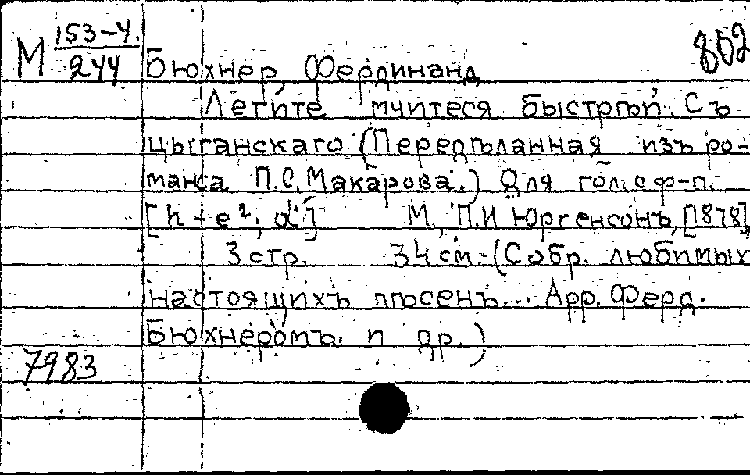 М 153-4/244
802
Бюхнер, Фердинанд
Летите мчитеся быстрѣй. Съ
цыганскаго (Передѣланная изъ ро-
манса П.С. Макарова.) Для гол. с ф-п.
[h - e²; d] М., П.И Юргенсонъ, [1878],
3 стр. 34 см. (Собр. любимых
настоящихъ пѣсенъ... Арр. Ферд.
Бюхнеромъ. п др.)
7983